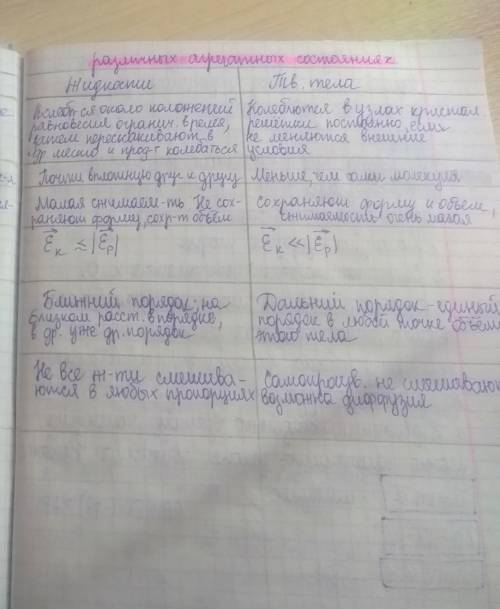 различных агрегатных состояниях
Жидкости
Тв. тела
Колеб-ся около положений
равновесия огранич. время,
затем перескакивают в
др. место и прод-т колебаться
Колеблются в узлах кристал
решётки постоянно, если
не меняются внешние
условия
Почти вплотную друг к другу
Меньше, чем сами молекулы
Малая сжимаем-ть. Не сох-
раняют форму, сохр-т объём
сохраняют форму и объём,
сжимаемость очень малая
Ek ≤ |Ep|
Ek << |Ep|
Ближний порядок; на
близком расст. в порядке,
в др. уже др. порядок
Дальний порядок - единый
порядок в любой точке объёма
этого тела
Не все ж-ти смешива-
ются в любых пропорциях
Самопроизв. не смешивают
возможна диффузия